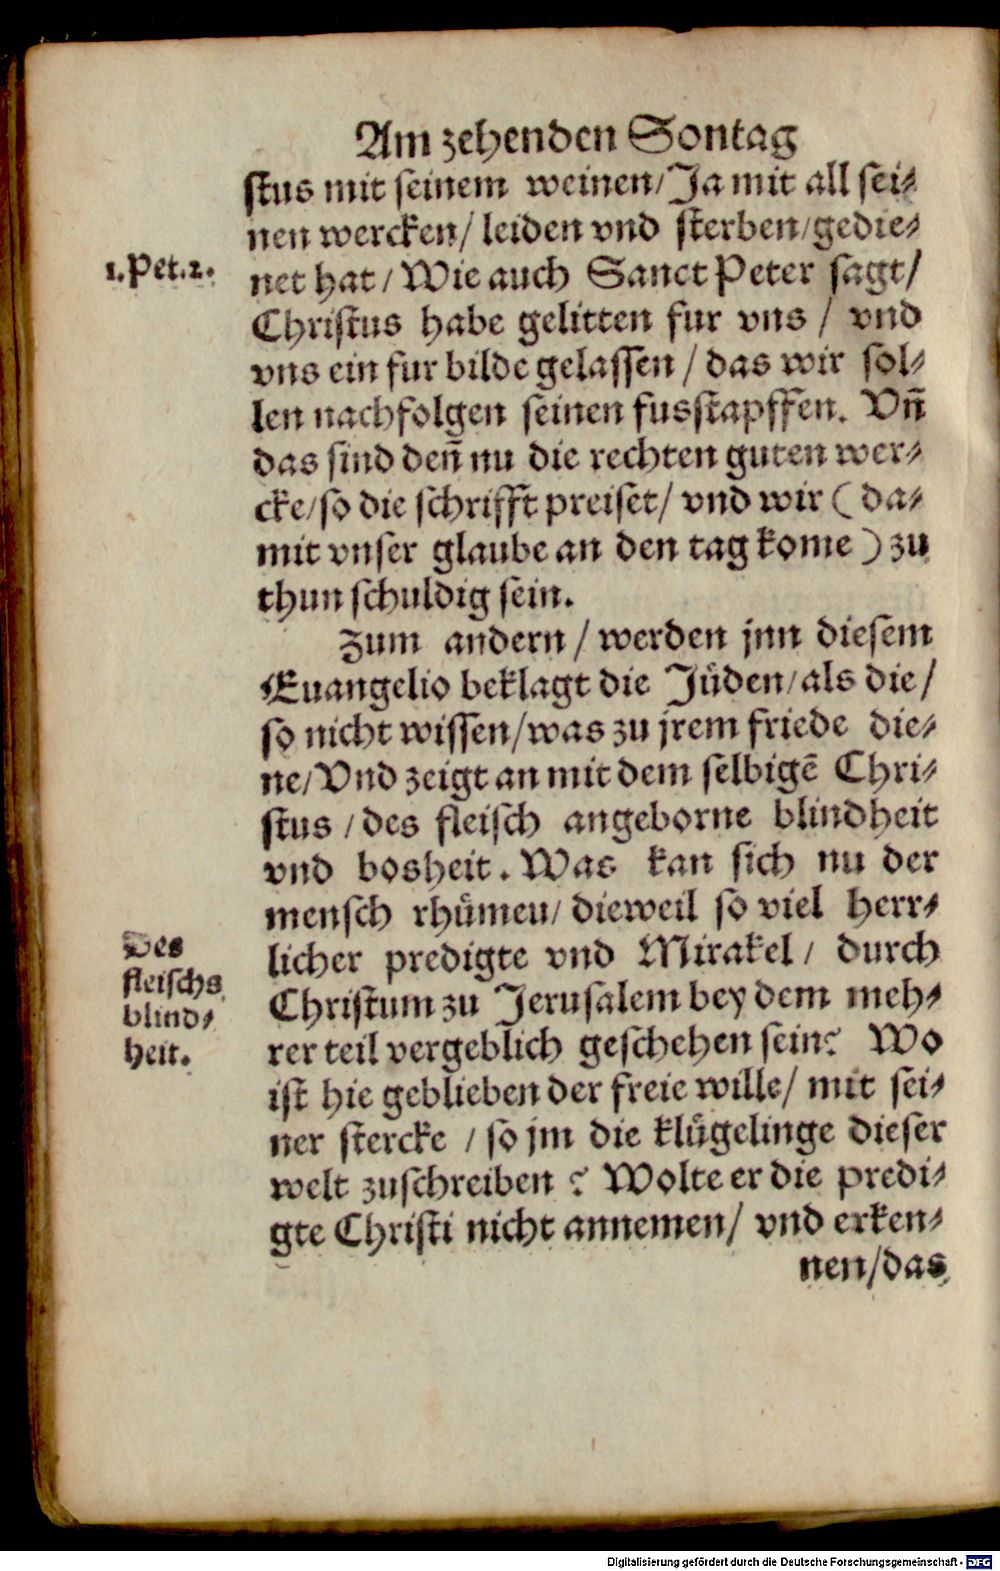 Am zehenden Sontag
stus mit seinem weinen/ Ja mit all sei⸗
nen wercken/ leiden vnd sterben/ gedie⸗
1. Pet. 2.
net hat/ Wie auch Sanct Peter sagt/
Christus habe gelitten fur vns / vnd
vns ein fur bilde gelassen / das wir sol⸗
len nachfolgen seinen fusstapffen. Vn̄
das sind den̄ nu die rechten guten wer⸗
cke/ so die schrifft preiset/ vnd wir ( da⸗
mit vnser glaube an den tag kome ) zu
thun schuldig sein.
Zum andern / werden jnn diesem
Euangelio beklagt die Jüden/ als die/
so nicht wissen/ was zu jrem friede die⸗
ne/ Vnd zeigt an mit dem selbigē Chri⸗
stus / des fleisch angeborne blindheit
vnd bosheit. Was kan sich nu der
mensch rhümen/ dieweil so viel herr⸗
Des
fleischs
blind⸗
heit.
licher predigte vnd Mirakel/ durch
Christum zu Jerusalem bey dem meh⸗
rer teil vergeblich geschehen sein? Wo
ist hie geblieben der freie wille/ mit sei⸗
ner stercke / so jm die klügelinge dieser
welt zuschreiben ? Wolte er die predi⸗
gte Christi nicht annemen/ vnd erken⸗
nen/ das
Digitalisierung gefördert durch die Deutsche Forschungsgemeinschaft - DFG